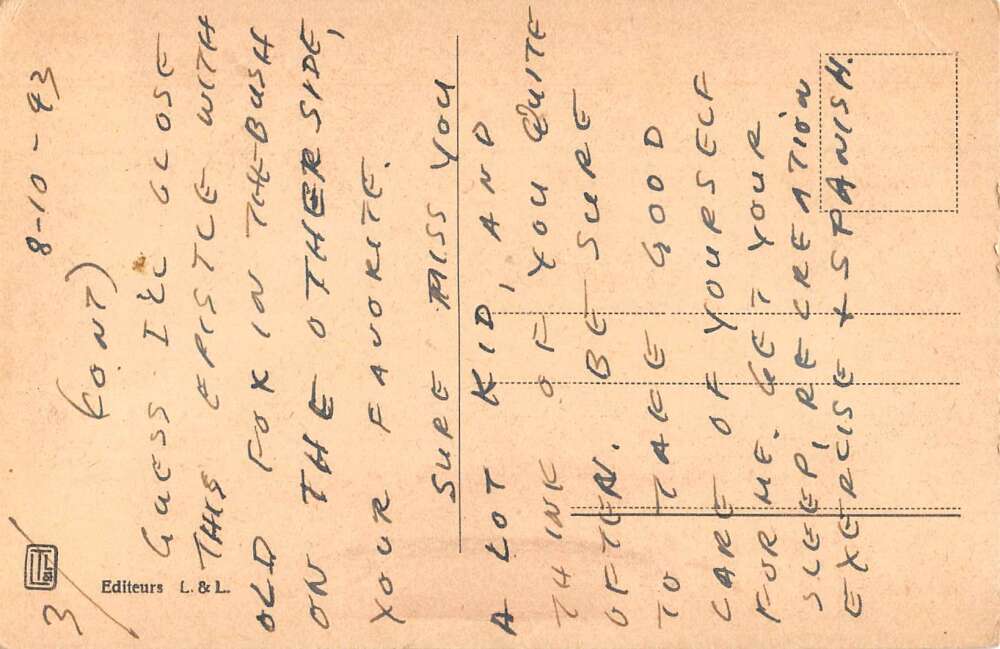 3/
8-10-43
CONT)
GUESS I'LL CLOSE
THIS EPISTLE WITH
OLD FOX IN THE BUSH
ON THE OTHER SIDE,
YOUR FAVORITE.
SURE MISS YOU
A LOT KID, AND
THINK OF YOU QUITE
OFTEN. BE SURE
TO TAKE GOOD
CARE OF YOURSELF
FOR ME. GET YOUR
SLEEP, RECREATION
EXERCISE + SPANISH.
Editeurs L. & L.